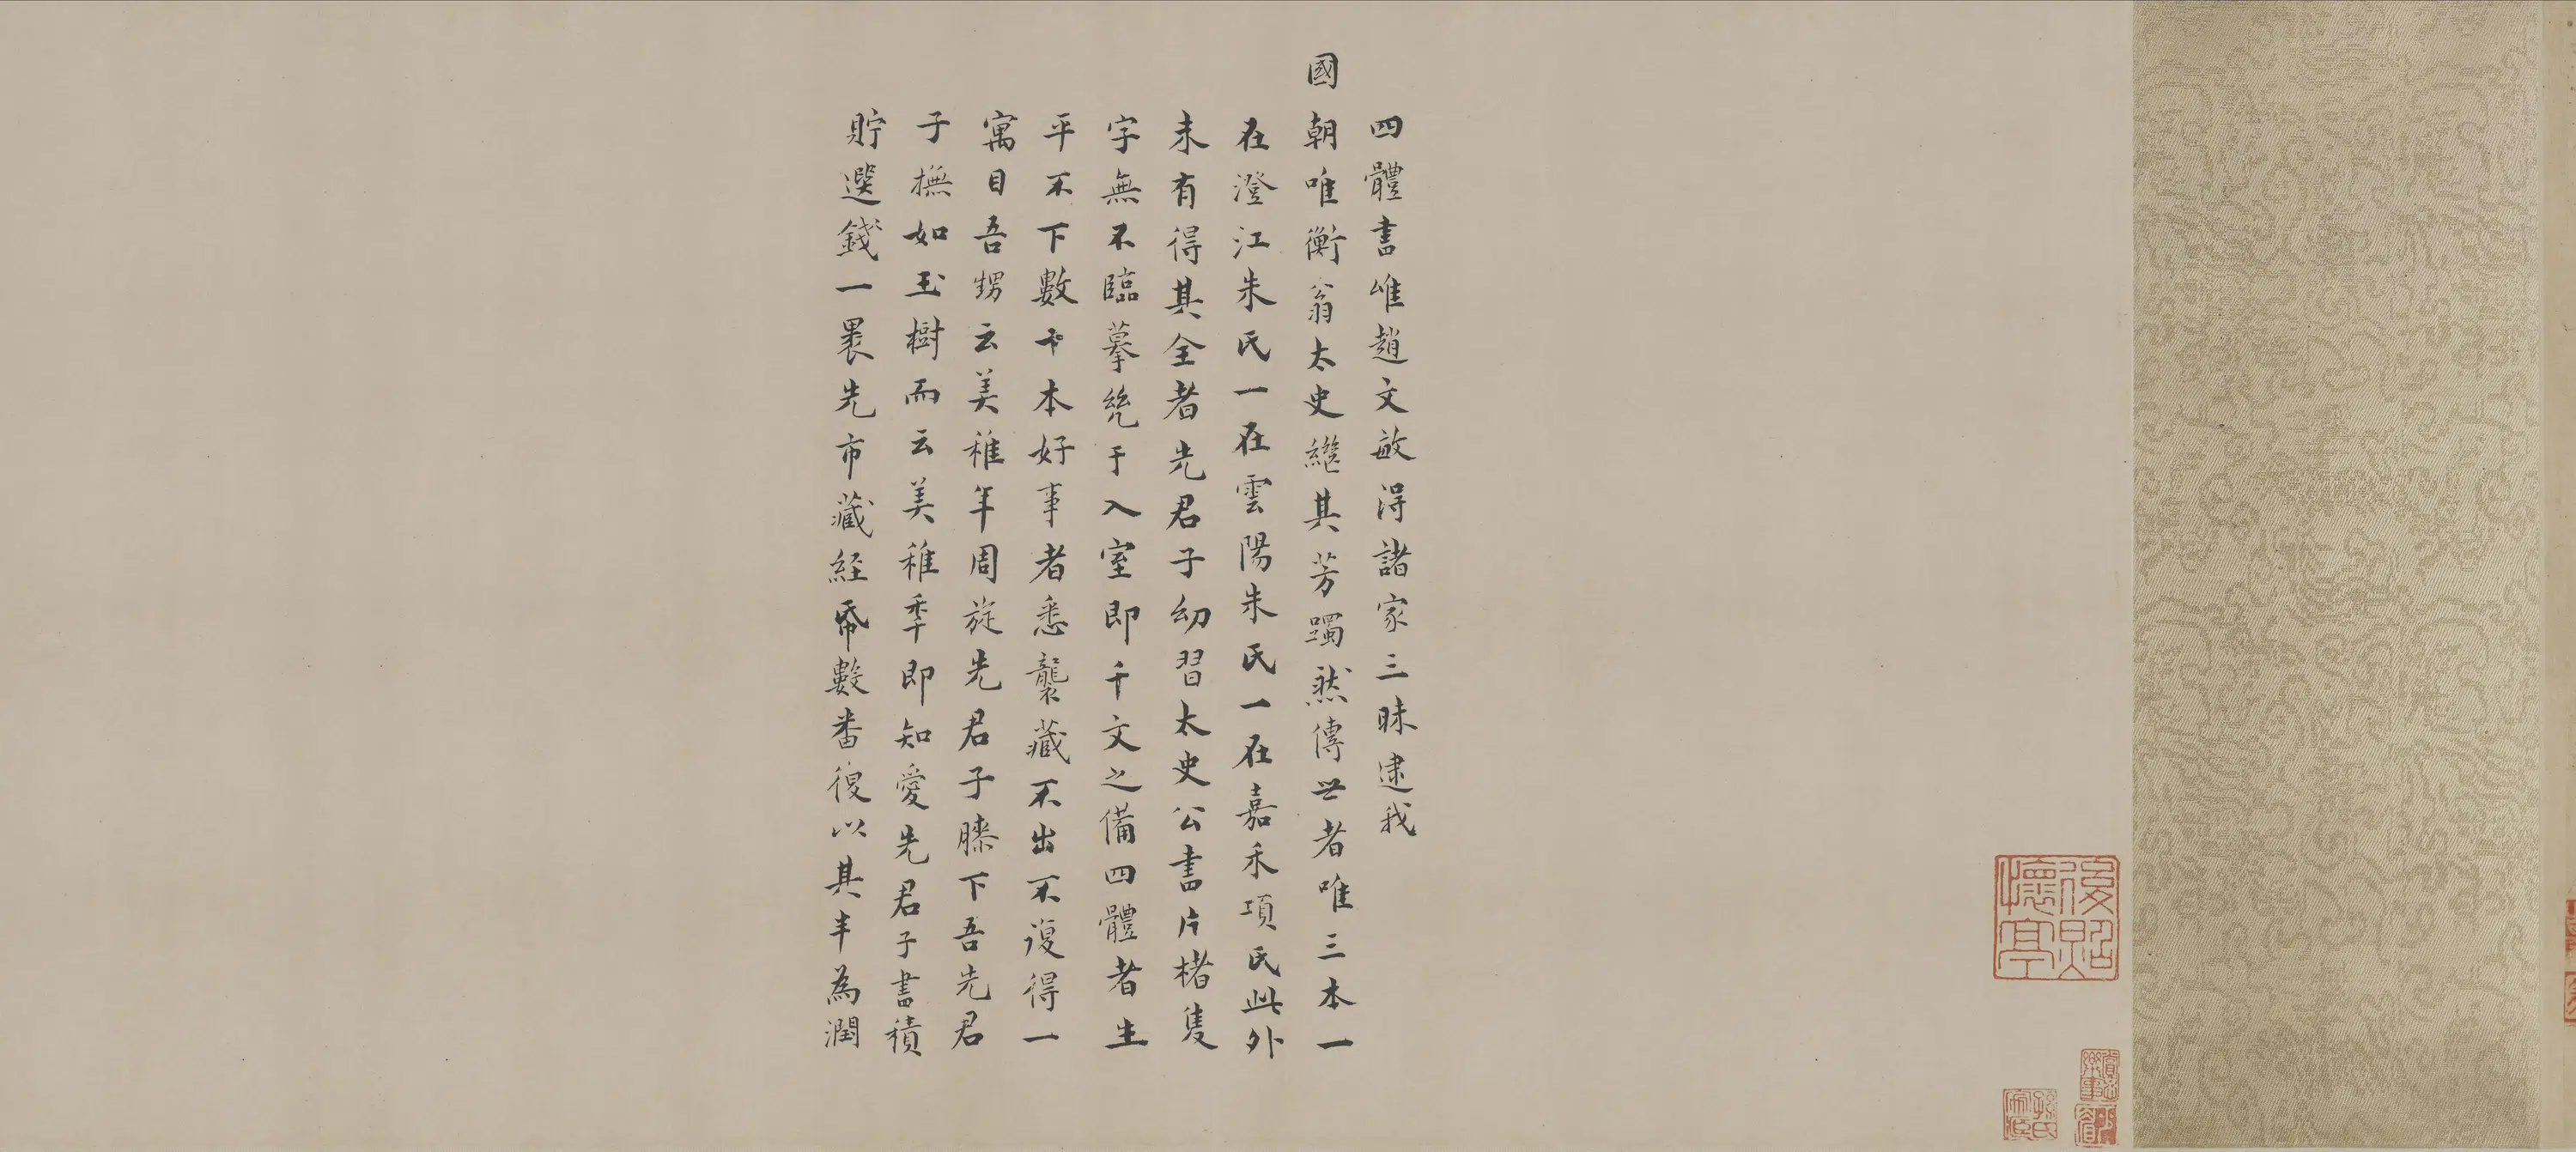 四體書唯趙文敏得諸家三昧逮我
國朝唯衡翁太史繼其芳躅然傳世者唯三本一
在澄江朱氏一在雲陽朱氏一在嘉禾項氏此外
未有得其全者先君子幼習太史公書片楮隻
字無不臨摹絶于入室即千文之備四體者生
平不下數十本好事者悉襲藏不出不復得一
寓目吾甥云美稚年周旋先君子膝下吾先君
子撫如玉樹而云美稚季即知愛先君子書積
貯選錢一裹先市藏経帋數番復以其半為潤